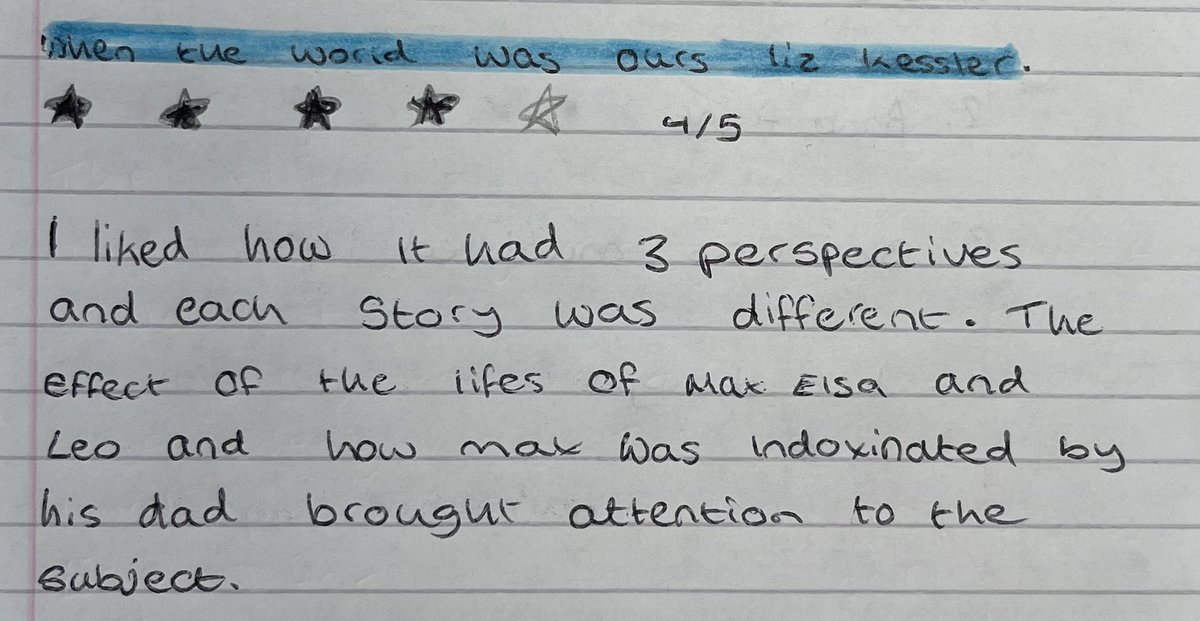 When the world was ours liz kessler.
4/5
I liked how it had 3 perspectives
and each story was different. The
effect of the lifes of Max Elsa and
Leo and how max was indoxinated by
his dad brought attention to the
subject.